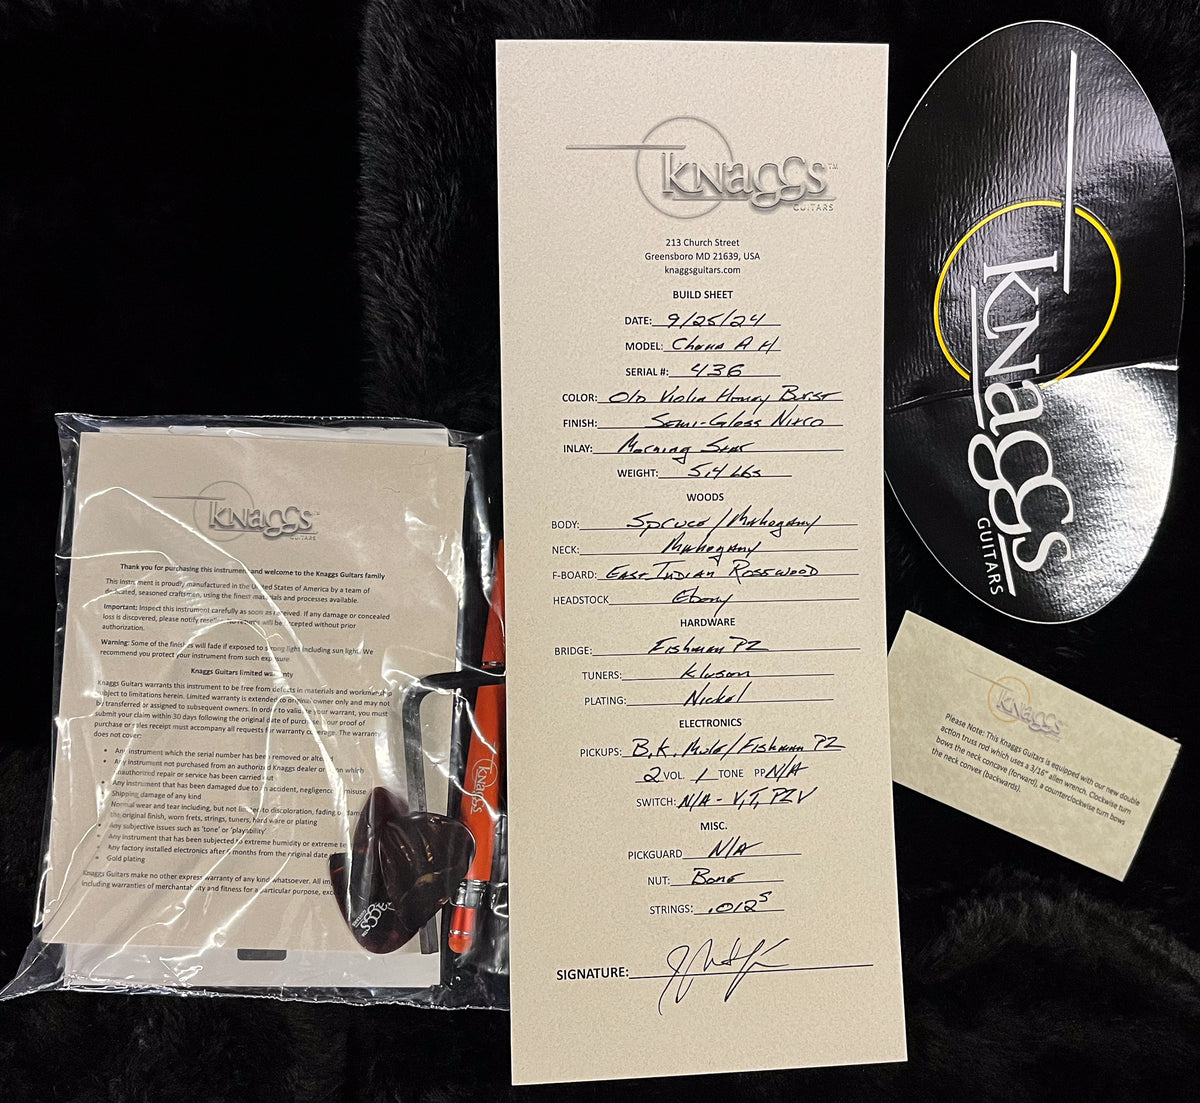 KNaGGS™
GUITARS
213 Church Street
Greensboro MD 21639, USA
knaggsguitars.com
BUILD SHEET
DATE: 9/25/24
MODEL: Choma A H
SERIAL #: 436
COLOR: Old Violin Honey Burst
FINISH: Semi-Gloss Nitro
INLAY: Morning Star
WEIGHT: 5.4 Lbs
WOODS
BODY: Spruce/Mahogany
NECK: Mahogany
F-BOARD: East Indian Rosewood
HEADSTOCK Ebony
HARDWARE
BRIDGE: Fishman PZ
TUNERS: Kluson
PLATING: Nickel
ELECTRONICS
PICKUPS: B.K. Mule/Fishman PZ
2 VOL. 1 TONE PP N/A
SWITCH: N/A - V, T, PZV
MISC.
PICKGUARD N/A
NUT: Bone
STRINGS: .012s
SIGNATURE:
KNaGGS
GUITARS
Thank you for purchasing this instrument and welcome to the Knaggs Guitars family
This instrument is proudly manufactured in the United States of America by a team of
dedicated, seasoned craftsmen, using the finest materials and processes available.
Important: Inspect this instrument carefully as soon as received. If any damage or concealed
loss is discovered, please notify will be accepted without prior
authorization.
Warning: Some of the finishes will fade if exposed to strong light including sun light. We
recommend you protect your instrument from such exposure.
Knaggs Guitars limited warranty
Knaggs Guitars warrants this instrument to be free from defects in materials and workmanship
subject to limitations herein. Limited warranty is extended to original owner only and may not
by transferred or assigned to subsequent owners. In order to validate your warrant, you must
submit your claim within 30 days following the original date of purchase. Your proof of
purchase or sales receipt must accompany all requests for warranty coverage. The warranty
does not cover:
• Any instrument which the serial number has been removed or altered
• Any instrument not purchased from an authorized Knaggs dealer or upon which
unauthorized repair or service has been carried out
• Any instrument that has been damaged due to an accident, negligence, misuse
• Shipping damage of any kind
• Normal wear and tear including, but not limited to discoloration, fading
the original finish, worn frets, strings, tuners, hardware or plating
• Any subjective issues such as 'tone' or 'playability'
• Any instrument that has been subjected to extreme humidity or extreme
• Any factory installed electronics after 6 months from the original date
• Gold plating
Knaggs Guitars make no other express warranty of any kind whatsoever. All
including warranties of merchantability and fitness for a particular purpose,
KNaGGS
KNaGGS
KNaGGS
GUITARS
KNaGGS
Please Note: This Knaggs Guitars is equipped with our new double
action truss rod which uses a 3/16" allen wrench. Clockwise turn
bows the neck concave (forward), a counterclockwise turn bows
the neck convex (backwards).